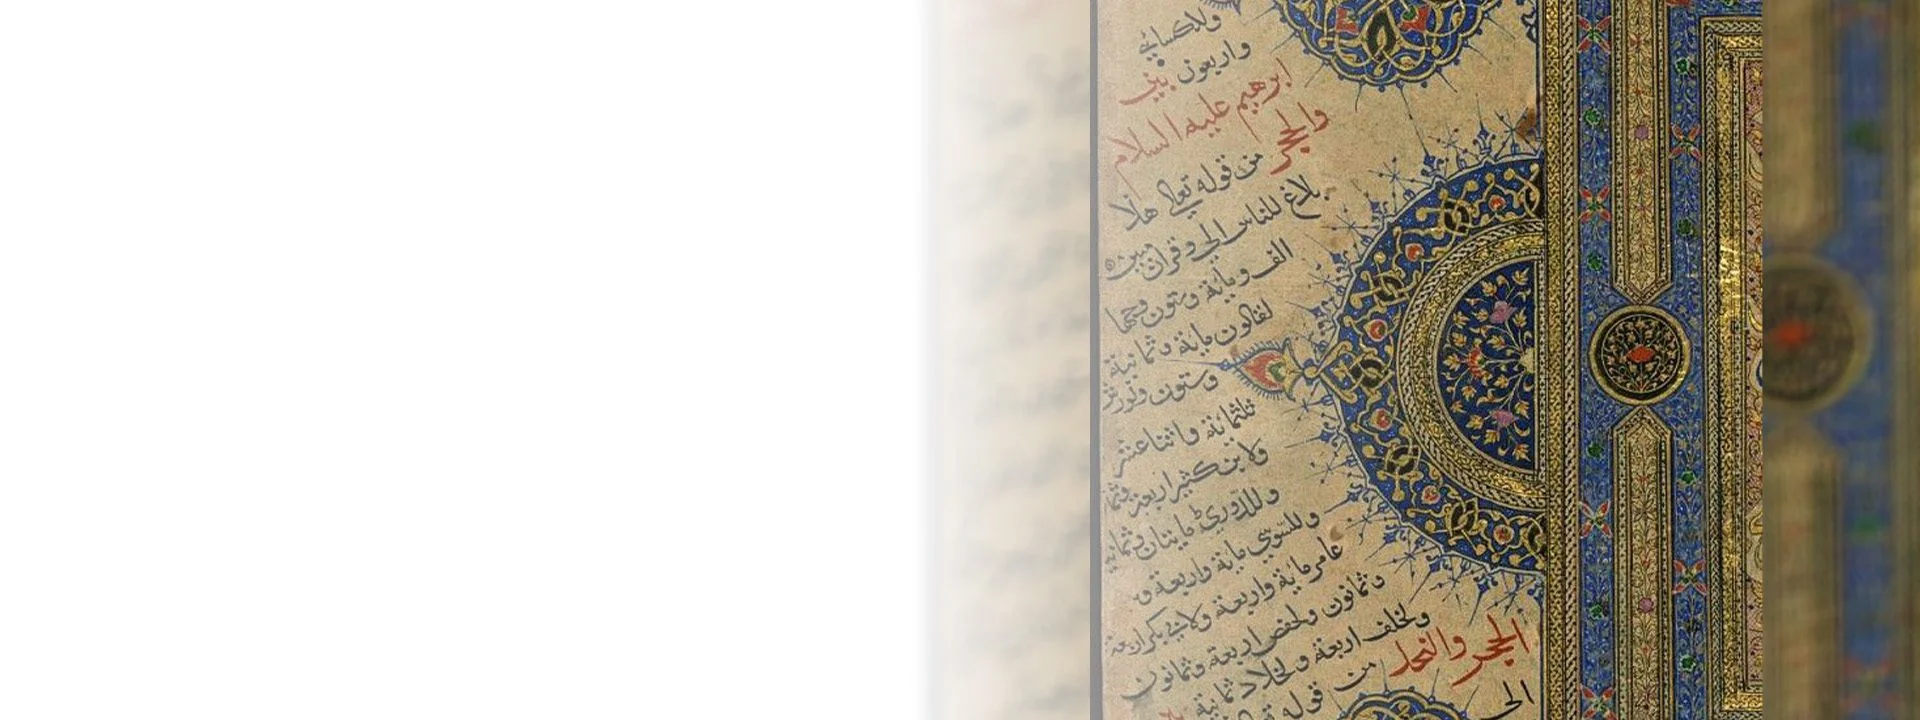 وللكسائي
واربعون بين
ابرهيم عليه السلام
والحجر
من قوله تعالى هذا
بلاغ للناس الى وقران مبين
الف ومائة وستون وجها
لقالون مائة وثمانية
وستون ولورش
ثلثمائة واثنتا عشر
ولابن كثير اربعة وثما
وللدوري مايتان وثمانية
وللسوسي مائة واربعة و
عامر مائة واربعة ولابي بكر اربعة
وثمانون ولحفص اربعة وثمانون
ولخلف اربعة ولخلاد ثمانية
الحجر والنحل
من قوله
الى